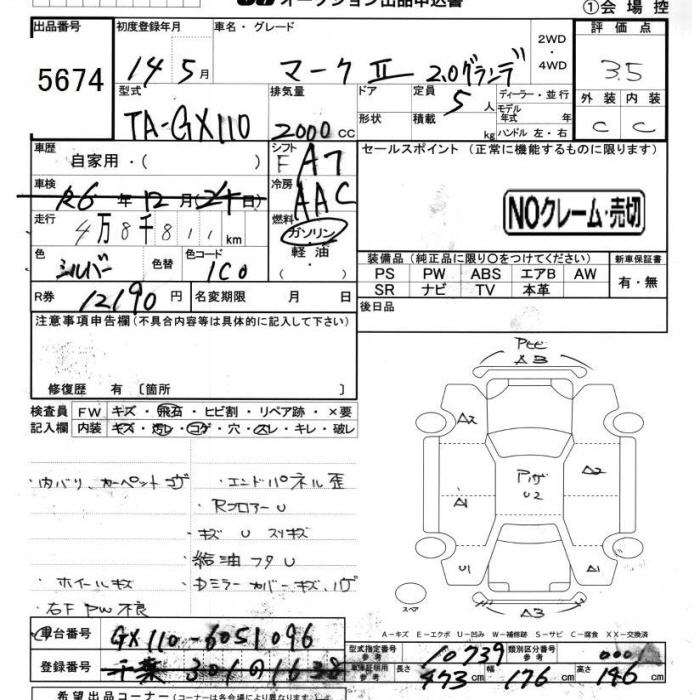 オークション出品申込書 ①会場控
出品番号 初度登録年月 車名・グレード 2WD・4WD 評価点
5674 14年5月 マークⅡ 2.0グランデ 3.5
型式 排気量 ドア 定員 ディーラー・並行 外装 内装
TA-GX110 2000cc 形状 積載 5人 kg モデル年式 年 ハンドル 左・右 C C
車歴 シフト セールスポイント (正常に機能するものに限ります)
自家用・( ) F AT
車検 R6年12月(21日) 冷房 AAC
NOクレーム・売切
走行 4万8千811km 燃料 ガソリン・軽油
色 シルバー 色替 色コード 1C0
装備品(純正品に限り○をつけてください) 新車保証書
PS PW ABS エアB AW 有・無
SR ナビ TV 本革
R券 12190円 名変期限 月 日 後日品
注意事項申告欄(不具合内容等は具体的に記入して下さい)
修復歴 有 [箇所 ]
検査員 FW キズ・飛石・ヒビ割・リペア跡・×要
記入欄 内装 キズ・汚レ・コゲ・穴・スレ・キレ・破レ
A3
A2
A2
U2
A1
U1 A1
A3
・内バリ、カーペット ・エンドパネル歪
・RフロアーU
・キズ U スリキズ
・給油フタU
・ホイールキズ ・Dミラーカバーキズ、ハゲ
・右F PW不良
スペア
A-キズ E-エクボ U-凹み W-補修跡 S-サビ C-腐食 XX-交換済
車台番号 GX110-6051096 型式指定番号 参考 10739 類別区分番号 参考 0001
登録番号 千葉301の1638 車庫証明用 参考 長さ 473cm 幅 176cm 高さ 146cm
希望出品コーナー(コーナーは各会場により